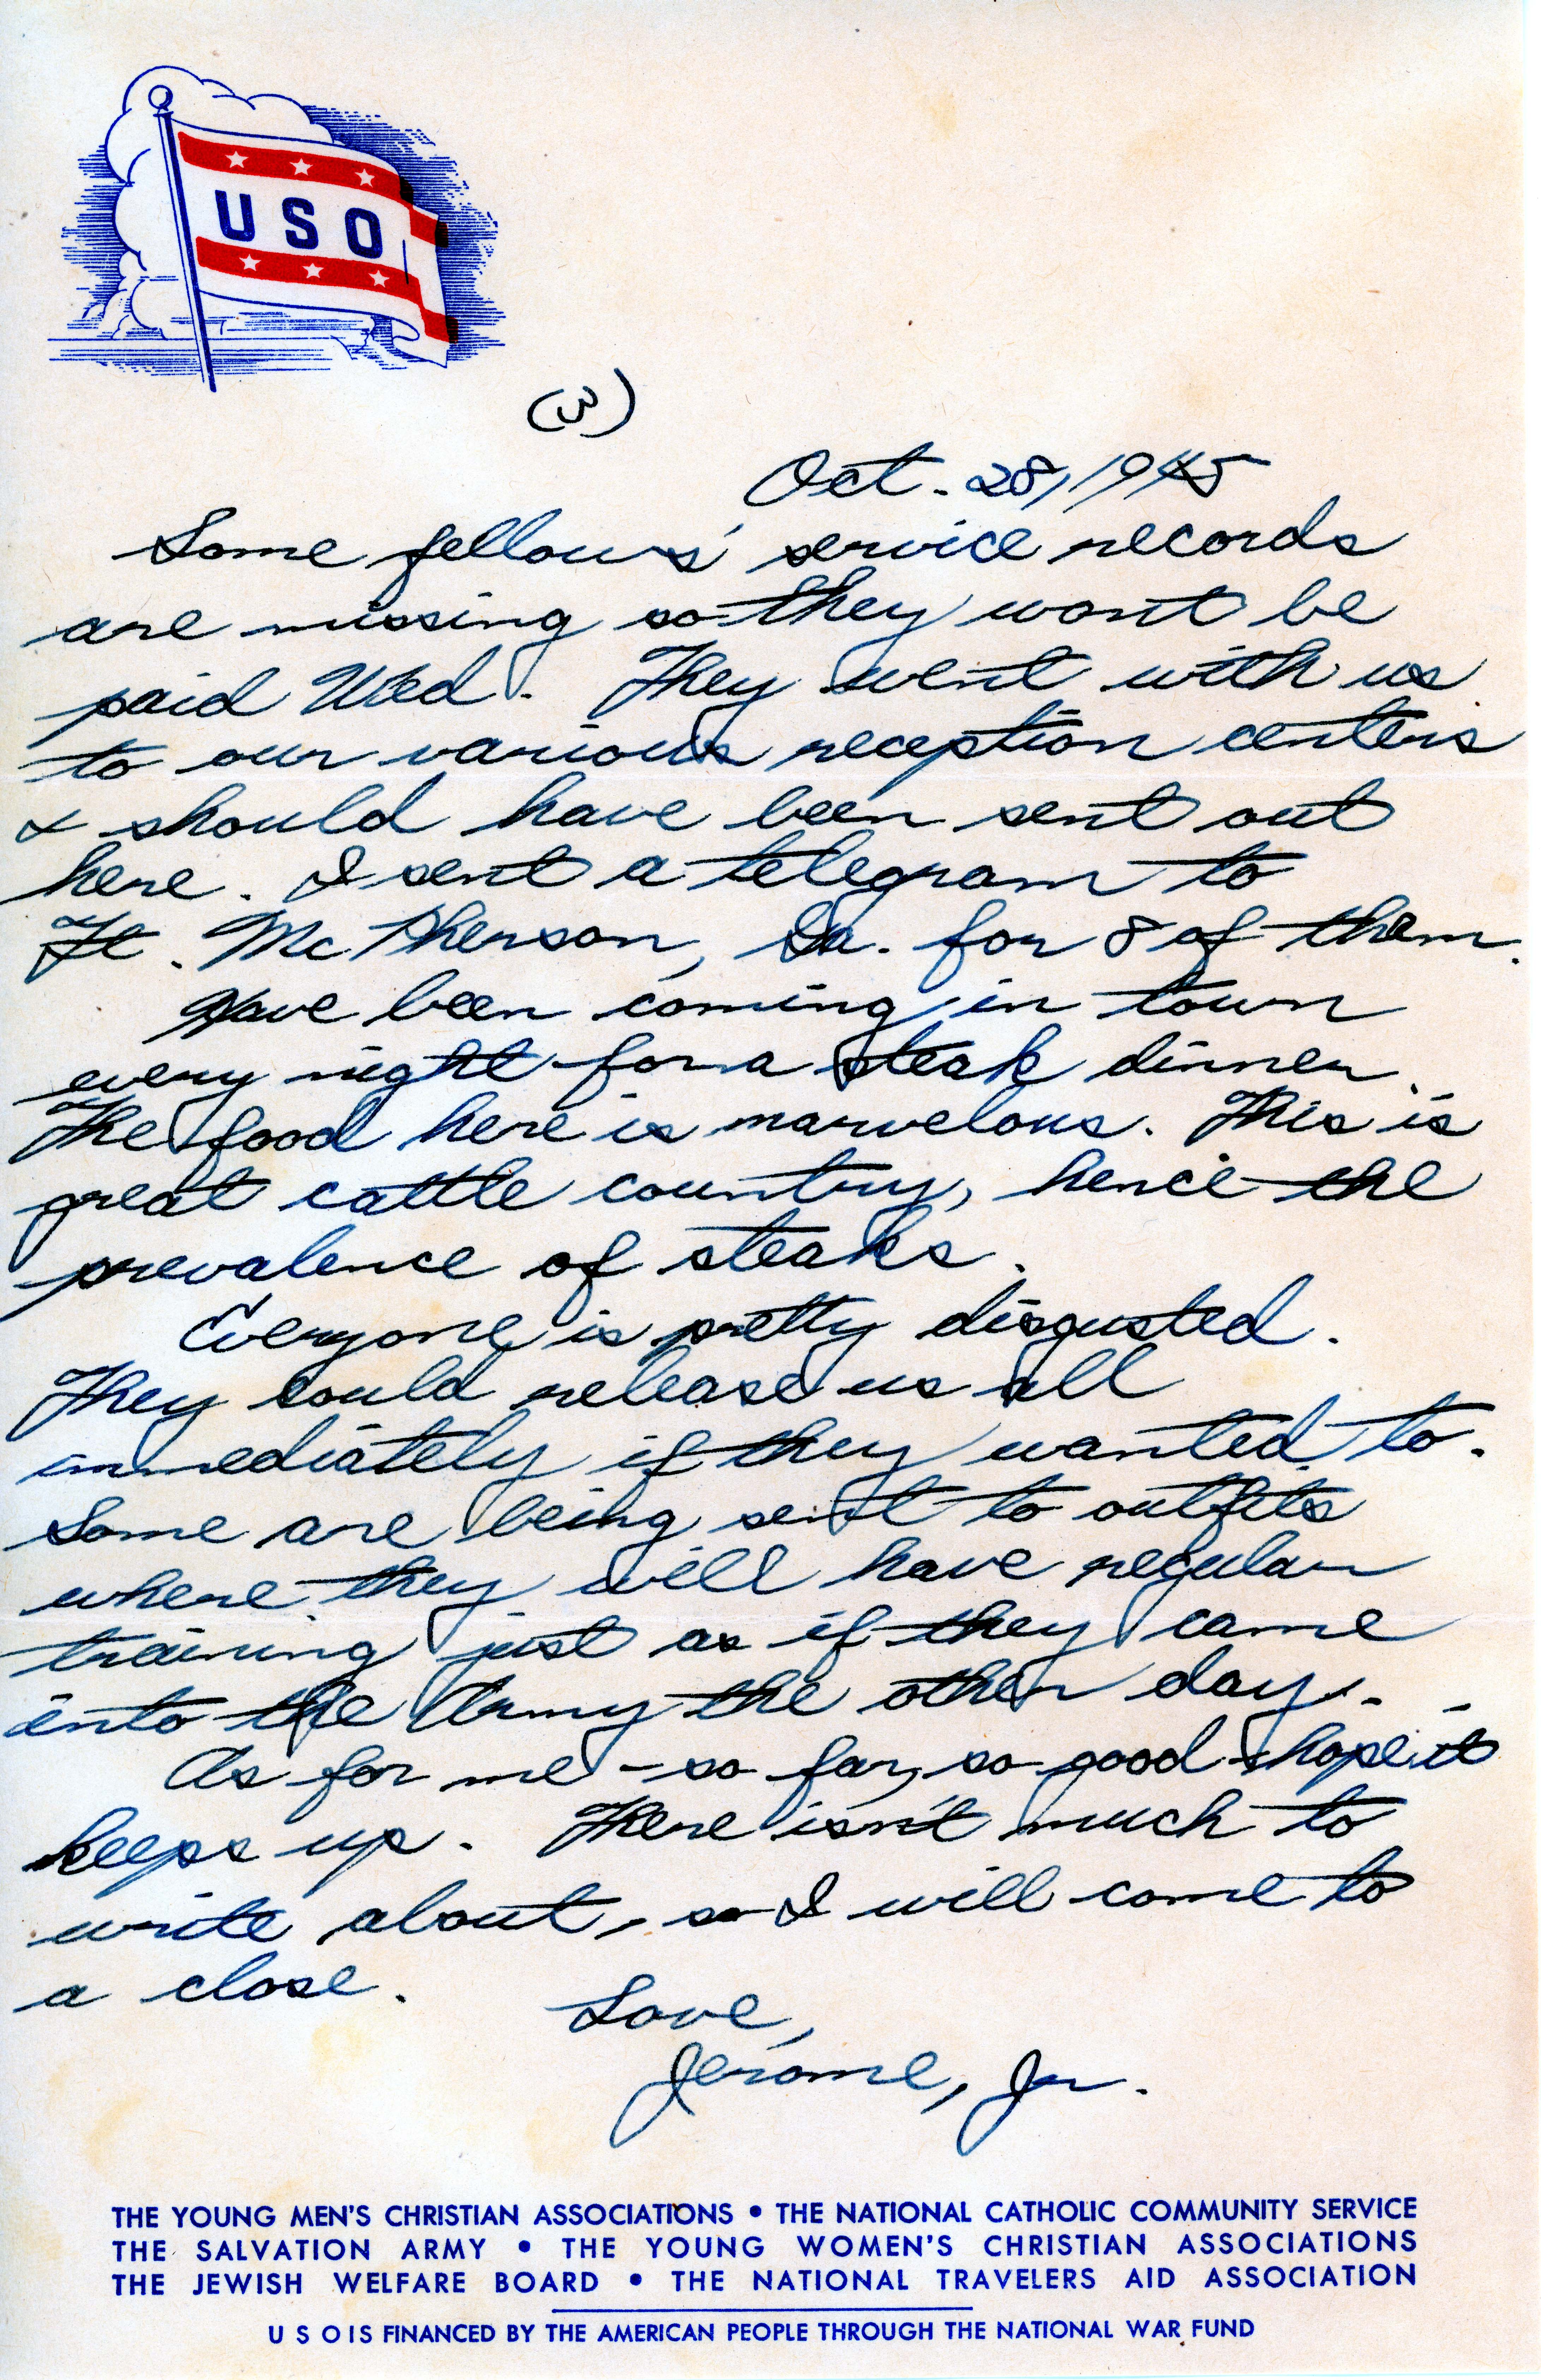 USO
(3)
Oct. 28, 1945
Some fellows' service records
are missing so they wont be
paid Wed. They went with us
to our various reception centers
& should have been sent out
here. I sent a telegram to
Ft. McPherson, Ga. for 8 of them.
Have been coming in town
every night for a steak dinner.
The food here is marvelous. This is
great cattle country, hence the
prevalence of steaks.
Everyone is pretty disgusted.
They could release us all
immediately if they wanted to.
Some are being sent to outfits
where they will have regular
training just as if they came
into the Army the other day.
As for me - so far, so good & hope it
keeps up. There isn't much to
write about, so I will come to
a close.
Love,
Jerome, Jr.
THE YOUNG MEN'S CHRISTIAN ASSOCIATIONS • THE NATIONAL CATHOLIC COMMUNITY SERVICE
THE SALVATION ARMY • THE YOUNG WOMEN'S CHRISTIAN ASSOCIATIONS
THE JEWISH WELFARE BOARD • THE NATIONAL TRAVELERS AID ASSOCIATION
U S O IS FINANCED BY THE AMERICAN PEOPLE THROUGH THE NATIONAL WAR FUND